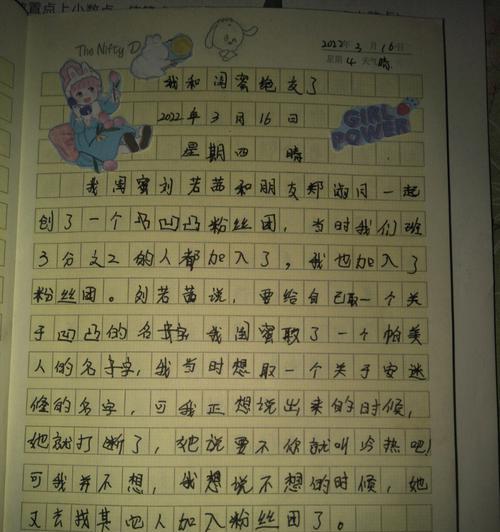 置点上小数点
The Nifty D
2022年3月16日
星期4 天气晴
我和闺蜜绝交了
2022年3月16日
星期四 晴
GIRL POWER
我闺蜜刘若茜和朋友郑淑月一起
创了一个马凹凸粉丝团，当时我们班
3分之2的人都加入了，我也加入了
粉丝团。刘若茜说，要给自己取一个关
于凹凸的名字，我闺蜜取了一个帕美
人的名字，我当时想取一个关于安迷
修的名字，可我正想说出来的时候，
她就打断了，她说要不你就叫冷热吧！
可我并不想，我想说不想的时候，她
又去找其他人加入粉丝团了。